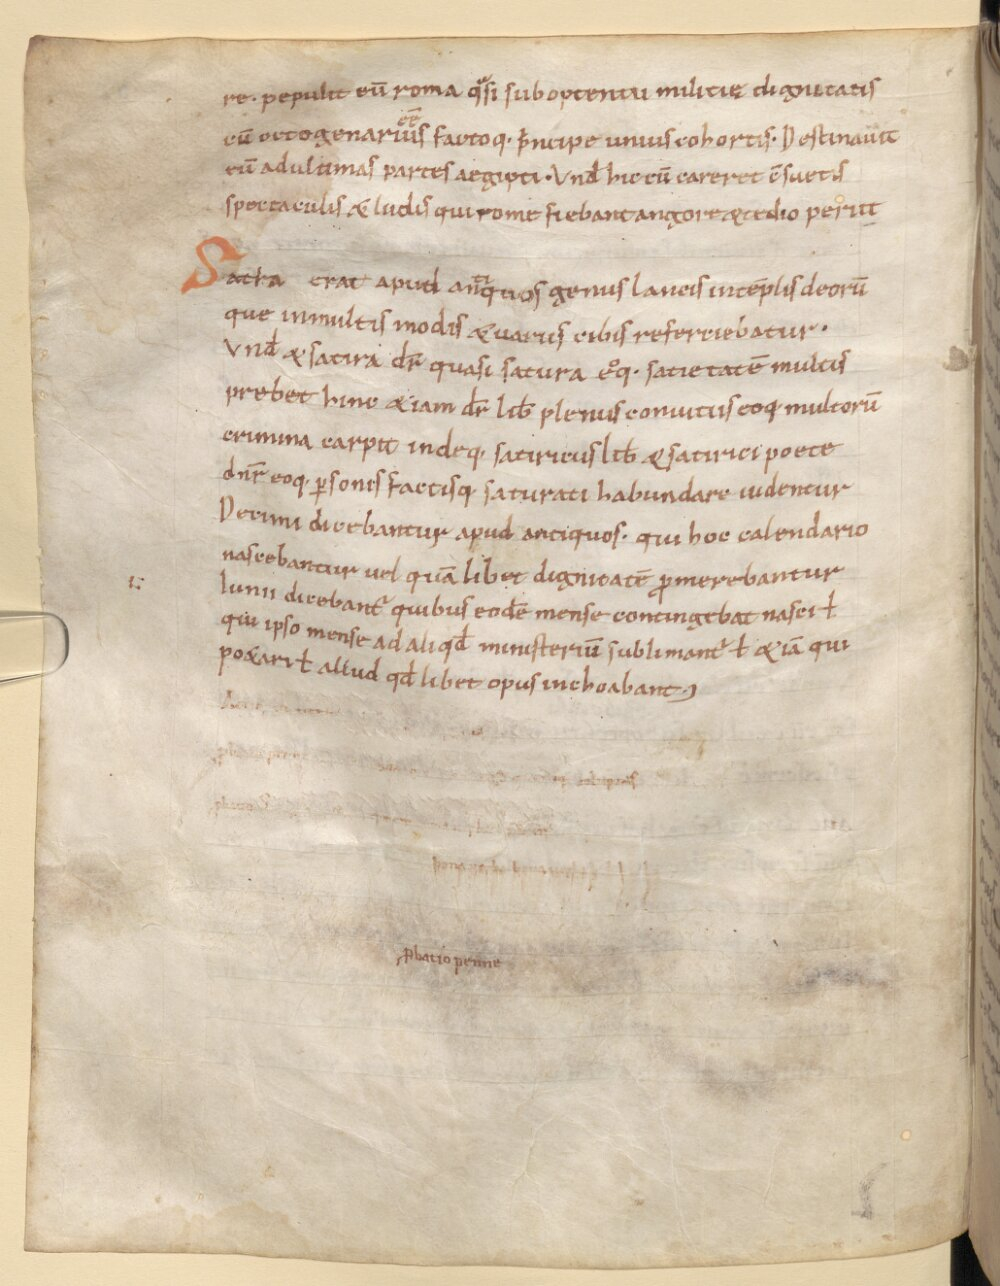 re. pepulit eū roma qͣsi suboptentu militię dignitatis
cū octogenarius eēt factoq. prīncipe unius cohortis. Destinauit
eū adultimas partes aegipti. Vnđ hic cū careret c̄suetis
spectaculis & ludis qui rome fiebant angore & tedio periit
Satira erat apud antiquos genus lancis intēplis deorū
que inmultis modis & uarius cibis referciebatur.
Vnđ & satira dr̄ quasi satura eoq. satietatē multis
prebet hinc & iam dr̄ lib̄ plenus conuitiis eoq multorū
crimina carpit indeq. satiricus lib̄ & satirici poete
dnr̄ eoq. ꝑsonis factisq saturati habundare uidentur
Decimi dicebantur apud antiquos. qui hoc calendario
nascebantur uel quā libet dignitatē ꝓmerebantur
Iunii dicebant᷒ quibus eodē mense contingebat nasci ł
qui ipso mense ad aliqđ ministeriū sublimant᷒ ł & iā qui
ł aliud qđ libet opus inchoabant
ꝓbatio penne